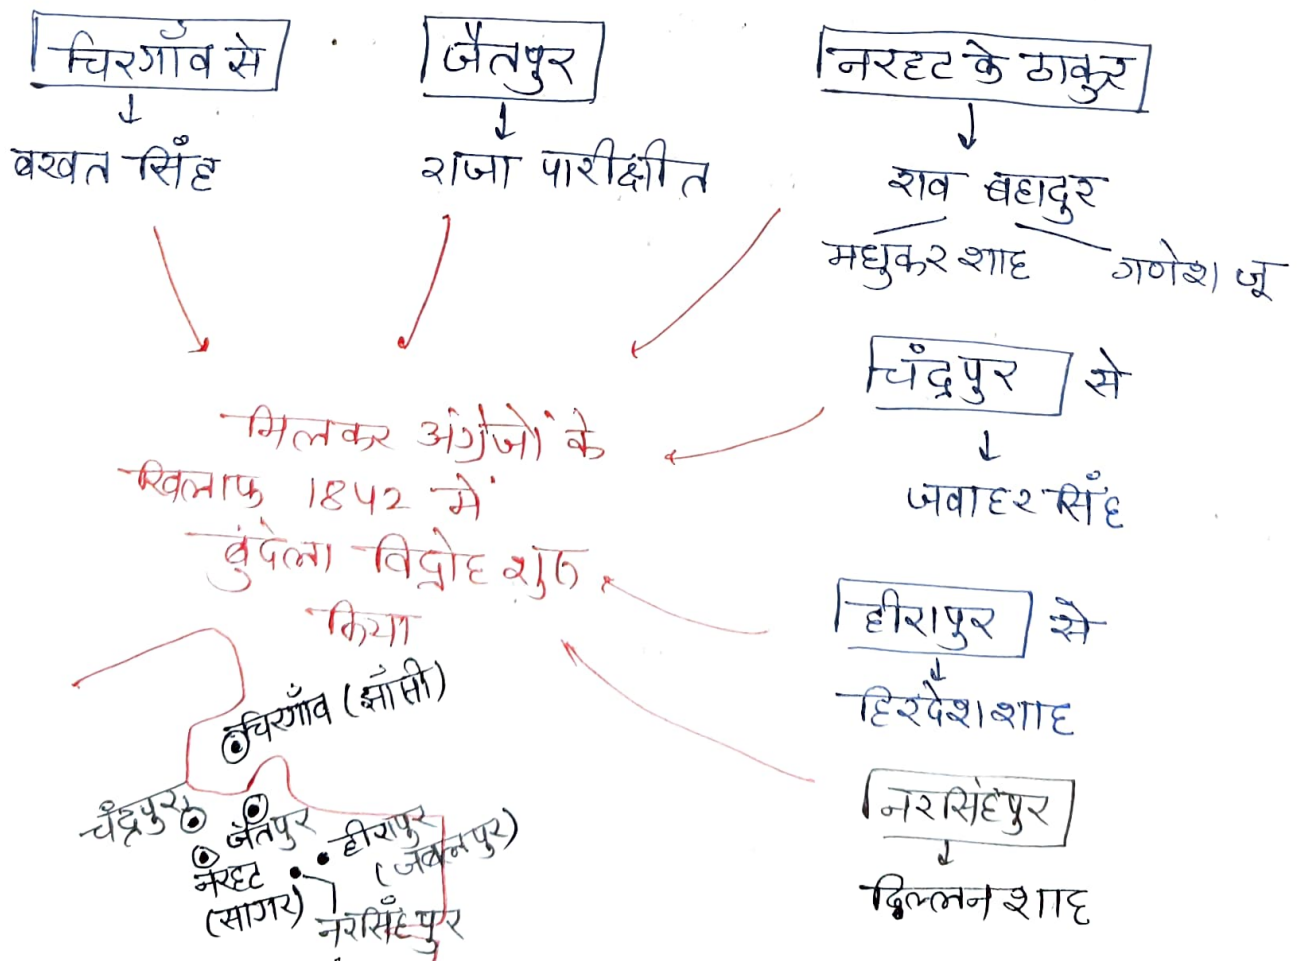 चिरगाँव से
बखत सिँह
जैतपुर
राजा पारीक्षीत
नरहट के ठाकुर
राव बहादुर
मधुकर शाह
गणेश जू
चिंद्रपुर से
जवाहर सिँह
हीरापुर से
हिरदेश शाह
नरसिंहपुर
दिल्लन शाह
मिलकर अंग्रेजों के
खिलाफ 1842 में
बुंदेला विद्रोह शुरु
किया
चिरगाँव (झाँसी)
चंद्रपुर
जैतपुर
हीरापुर
(जबलपुर)
नरहट
(सागर)
नरसिँहपुर